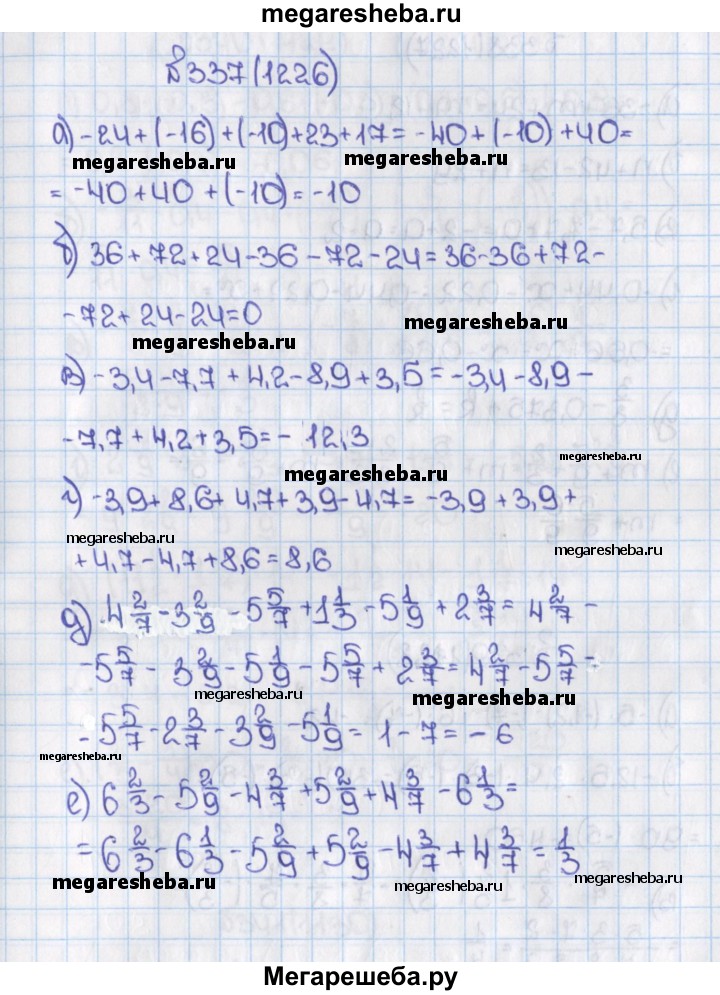 megaresheba.ru
№337(1226)
а) -24+(-16)+(-10)+23+17= -40+(-10)+40=
megaresheba.ru megaresheba.ru
= -40+40+(-10)=-10
б) 36+72+24-36-72-24=36-36+72-
-72+24-24=0 megaresheba.ru
megaresheba.ru
в) -3,4-7,7+4,2-8,9+3,5=-3,4-8,9-
-7,7+4,2+3,5=-12,3
megaresheba.ru megaresheba.ru
г) -3,9+8,6+4,7+3,9-4,7= -3,9+3,9+
megaresheba.ru megaresheba.ru
+4,7-4,7+8,6=8,6
д) 4 2/7 - 3 2/9 - 5 5/7 + 1 1/3 - 5 1/9 + 2 3/7 = 4 2/7 -
-5 5/7 - 3 2/9 - 5 1/9 - 5 5/7 + 2 3/7 = 4 2/7 - 5 5/7 -
megaresheba.ru megaresheba.ru
-5 5/7 - 2 3/7 - 3 2/9 - 5 1/9 = 1-7=-6
megaresheba.ru
е) 6 2/3 - 5 2/9 - 4 3/7 + 5 2/9 + 4 3/7 - 6 1/3 =
= 6 2/3 - 6 1/3 - 5 2/9 + 5 2/9 - 4 3/7 + 4 3/7 = 1/3
megaresheba.ru megaresheba.ru megaresheba.ru
Мегарешеба.ру